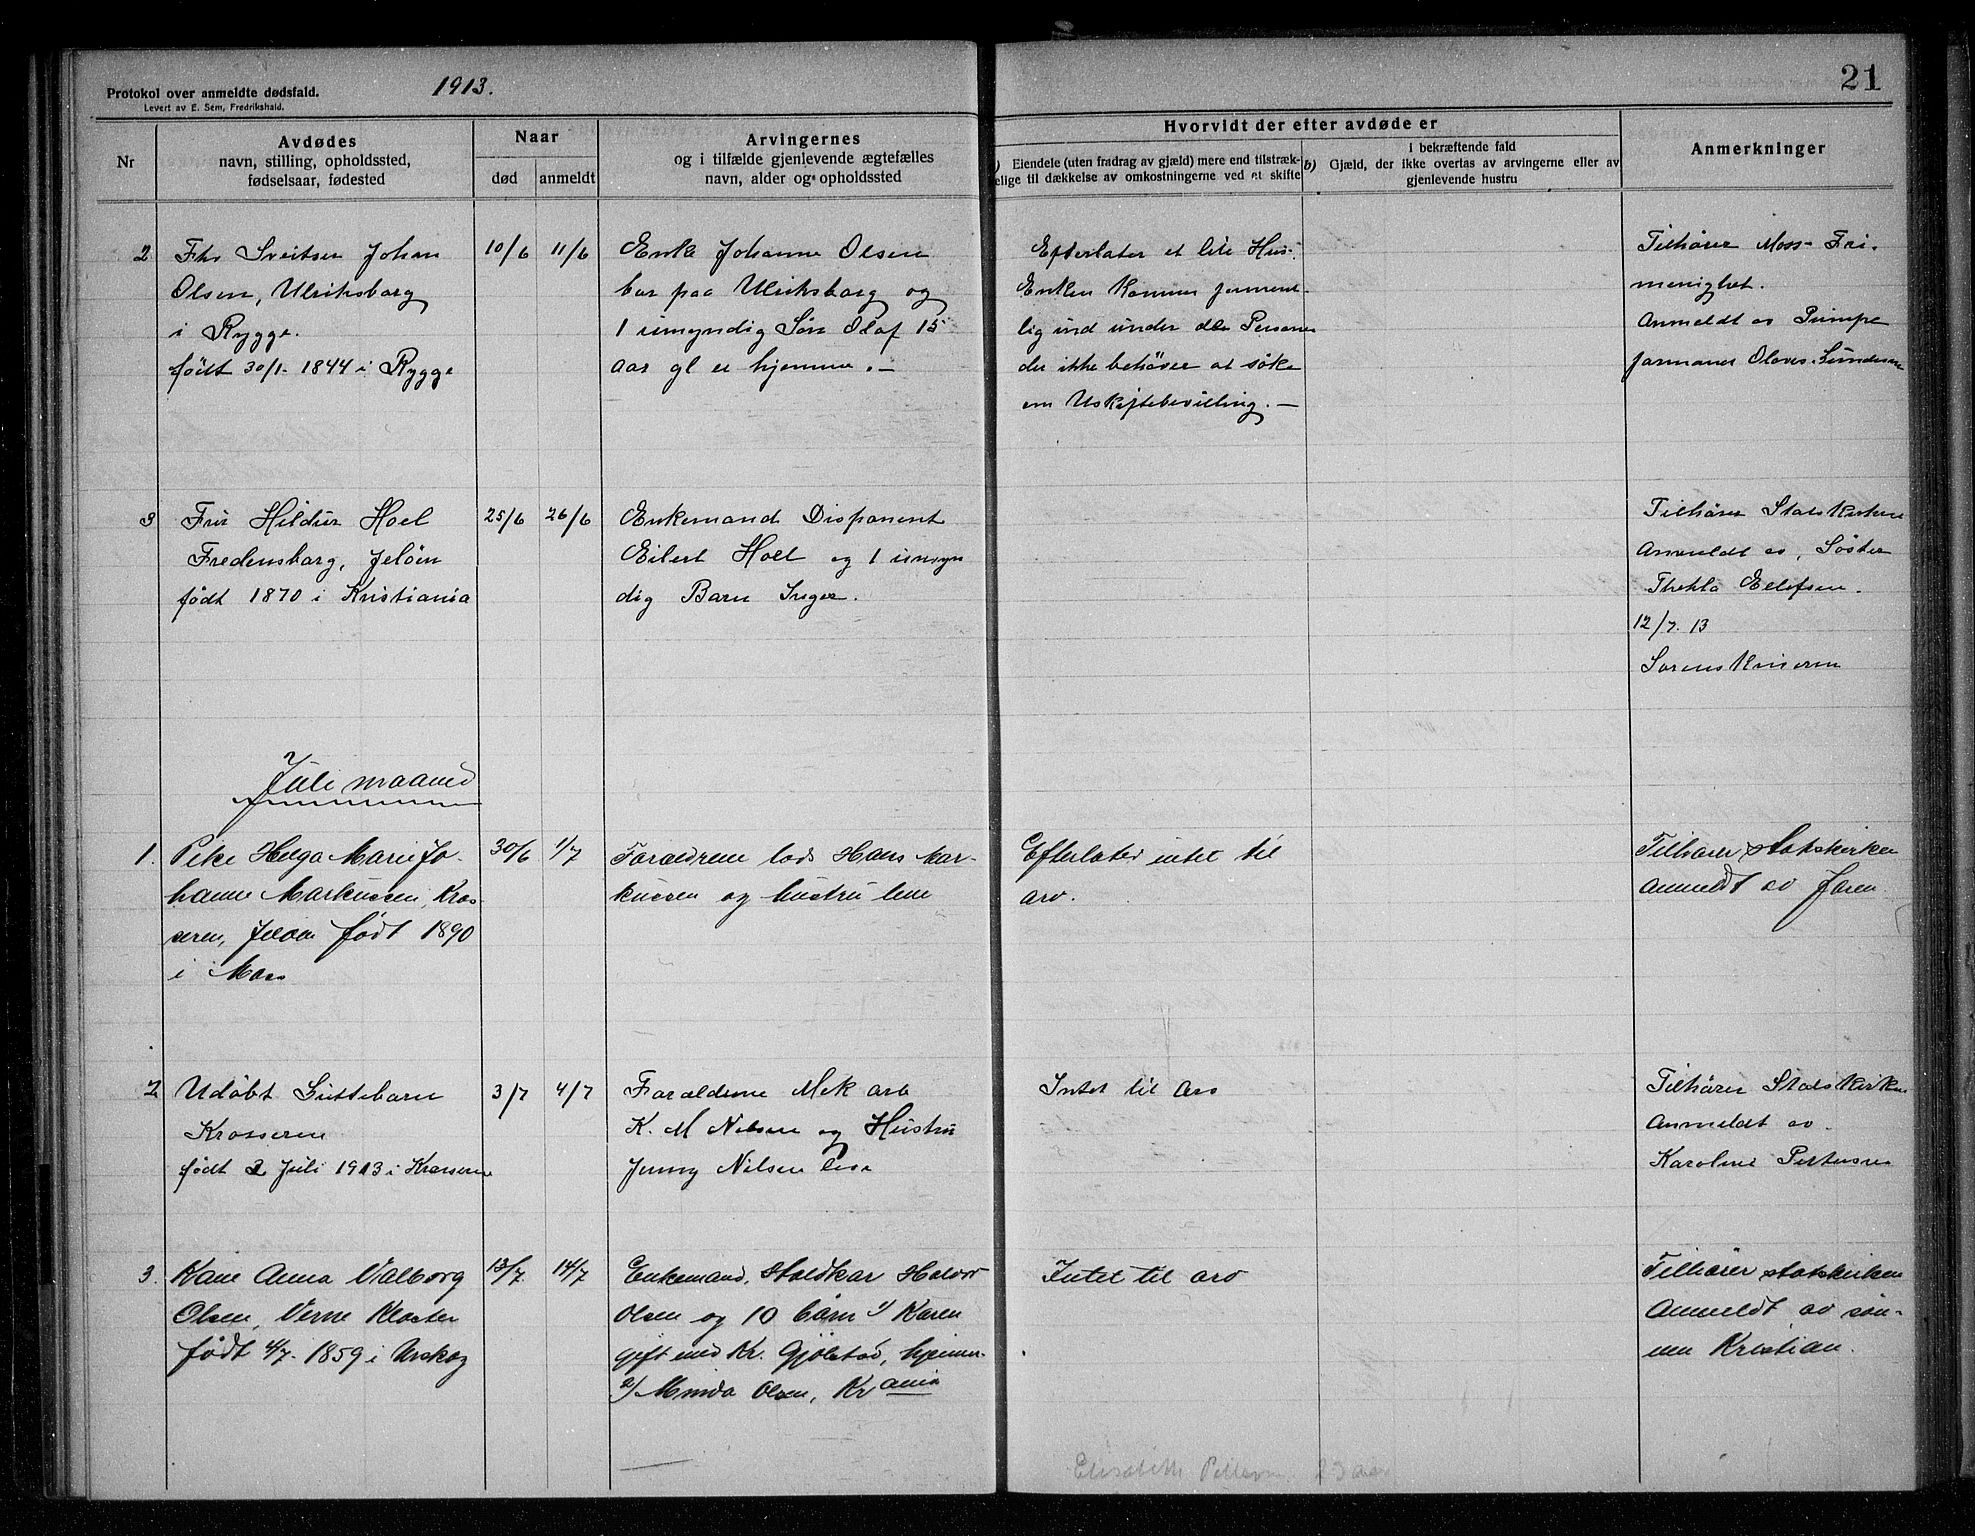 Protokol over anmeldte dødsfald.
Levert av E. Sem, Fredrikshald.
1913.
21
Nr
Avdødes
navn, stilling, opholdssted,
fødselsaar, fødested
Naar
død
anmeldt
Arvingernes
og i tilfælde gjenlevende ægtefælles
navn, alder og opholdssted
Hvorvidt der efter avdøde er
) Eiendele (uten fradrag av gjæld) mere end tilstræk-
elige til dækkelse av omkostningerne ved et skifte
i bekræftende fald
b) Gjæld, der ikke overtas av arvingerne eller av
gjenlevende hustru
Anmerkninger
2
Fhv Sveitser Johan
Olsen, Ulriksborg
i Rygge.
født 30/1- 1844 i Rygge
10/6
11/6
Enke Johanne Olsen
bor paa Ulriksborg og
1 umyndig Søn Olaf 15
aar gl er hjemme. -
Efterlater et lite Hus.
Enken kommer forment
lig ind under de Personer
der ikke behøver at søke
om Uskiftebevilling. -
Tilhører Moss Fri-
menighet.
Anmeldt av Pumpe
formand Gundersen
3
Fru Hildur Hoel
Fredensborg, Jeløen
født 1870 i Kristiania
25/6
26/6
Enkemand Disponent
Eilert Hoel og 1 umyn
dig Barn Inger.
Tilhører Statskirken
Anmeldt av, Søster
Thekla Ellefsen.
12/7. 13
Sorenskriveren
Juli maaned
1.
Pike Helga Marie Jo-
hanne Markussen, Kros-
seren, Jeløen født 1890
i Moss
30/6
1/7
Forældrene Hans Mar-
kussen og hustru
Efterlater intet til
arv.
Tilhører statskirken
anmeldt av Faren
2
Udøbt Guttebarn
Krosseren
født 2 Juli 1913 i Krosseren
3/7
4/7
Forældrene Mek arb
K. M Nilsen og Hustru
Jenny Nilsen
Intet til Arv
Tilhører Statskirken
Anmeldt av.
Karoline Pettersen
3.
Kone Anna Valborg
Olsen, Verne Kloster
født 4/7- 1859 i Urskog
13/7
14/7
Enkemand, Staldkar Halvor
Olsen og 10 børn 1/ Karen
gift med Kr. Gjølstad, hjemme.
2/ Minda Olsen, Kr ania
Intet til arv
Tilhører statskirken
Anmeldt av søn-
nen Kristian.
Elisabeth 23 aar